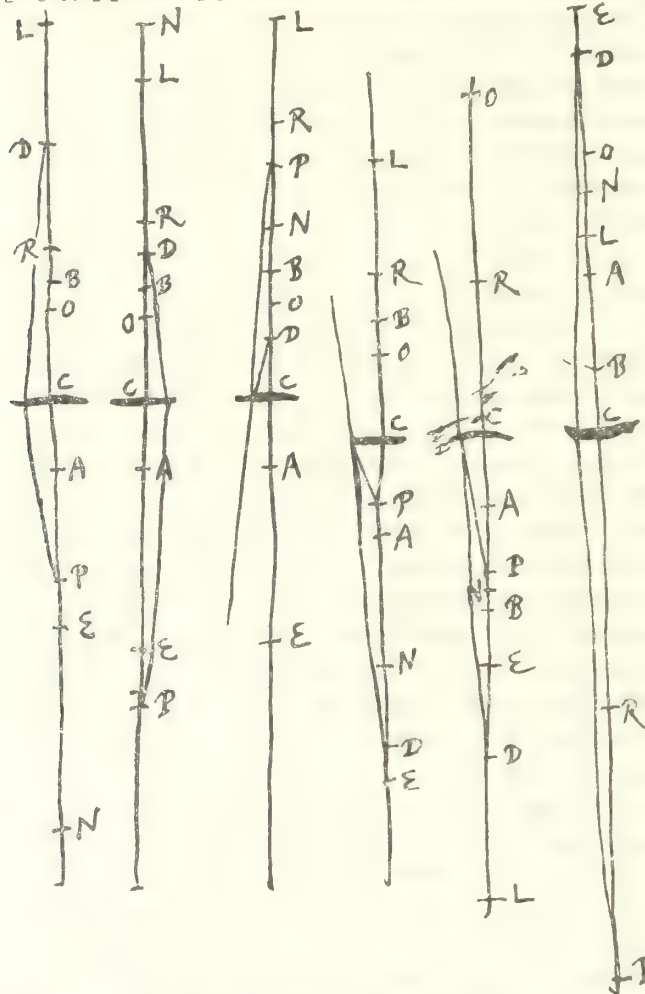 L
D
R
B
O
C
A
P
E
N
N
L
R
D
B
O
C
A
E
P
L
R
P
N
B
O
D
C
A
E
L
R
B
O
P
A
N
D
E
O
R
C
A
P
N
B
E
D
L
E
D
O
N
L
A
B
C
R